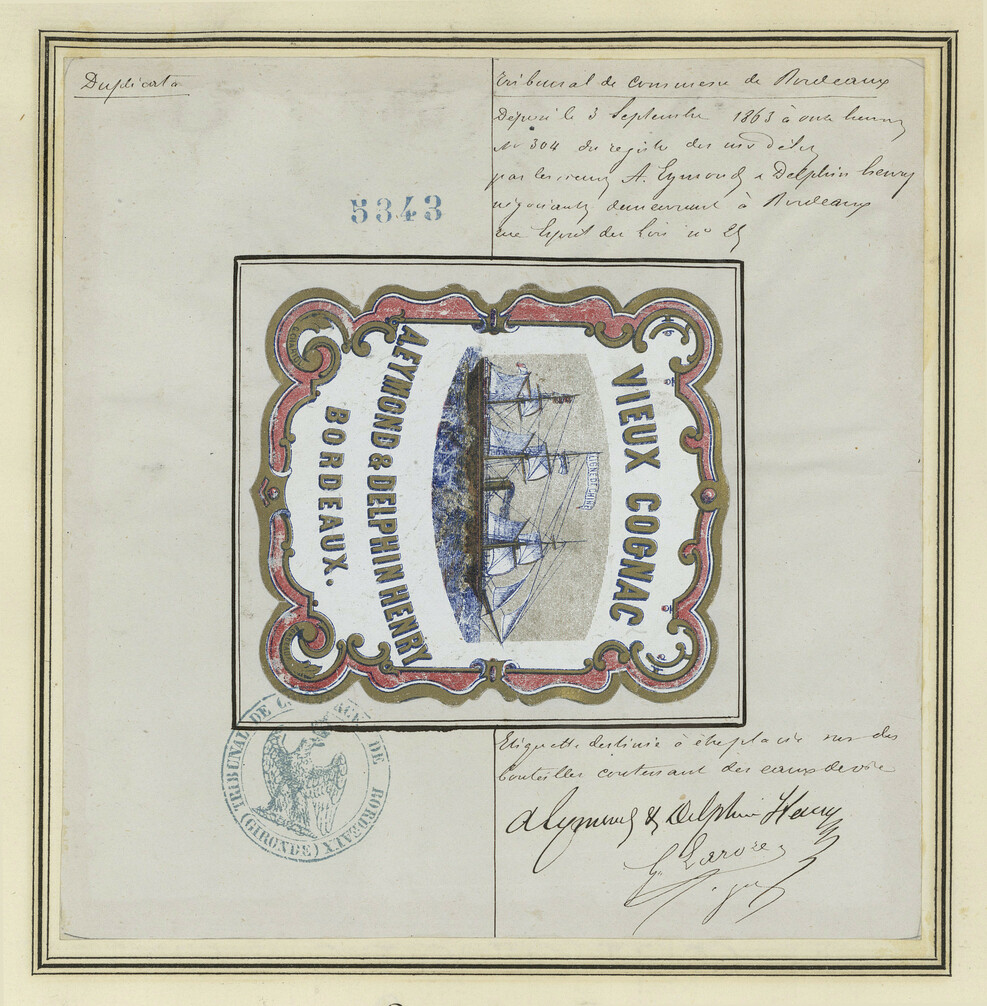 Duplicata
Tribunal de commerce de Bordeaux
Déposé le 3 Septembre 1863 à onze heures
No 304 du registre des modèles
par les sieurs A. Eymond & Delphin henry
négociants demeurant à Bordeaux
rue Esprit des Lois no 25
5343
VIEUX COGNAC
LIGNE DE CHINE
A. EYMOND & DELPHIN HENRY
BORDEAUX.
TRIBUNAL DE COMMERCE DE BORDEAUX
(GIRONDE)
Etiquette destinée à être placée sur des
bouteilles contenant des eaux de vie
A Eymond & Delphin Henry